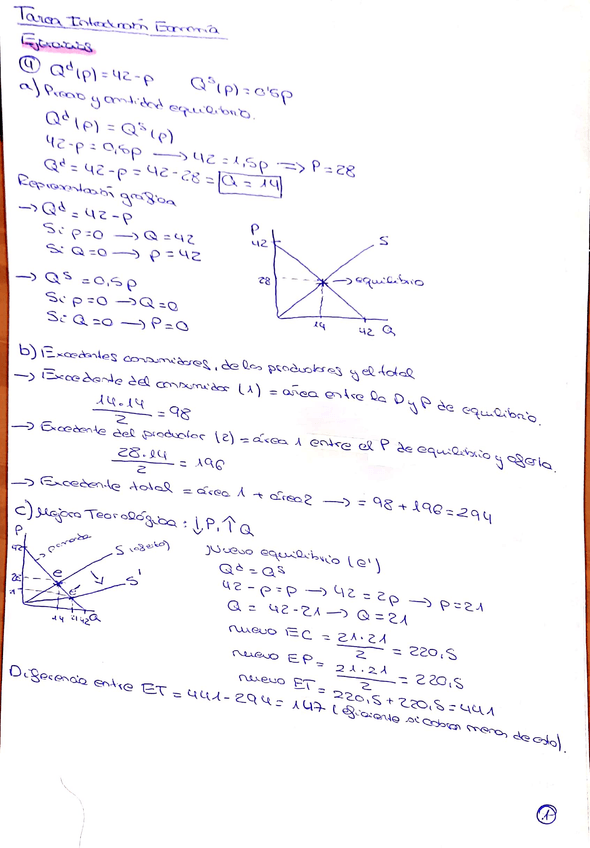 Tarea Intedración Economía
Ejercicios
④ Qᵈ(p)=42-p Qˢ(p)=0'5p
a) Precio y cantidad equilibrio.
Qᵈ(p) = Qˢ(p)
42-p = 0,5p → 42 = 1,5p => P=28
Qᵈ = 42-p = 42-28 = Q = 14
Representación gráfica
→ Qᵈ = 42-p
Si p=0 → Q=42
Si Q=0 → p=42
→ Qˢ = 0,5p
Si p=0 → Q=0
Si Q=0 → P=0
P
42
S
28
→ equilibrio
14
42 Q
b) Excedentes consumidores, de los productores y el total
→ Excedente del consumidor (1) = área entre la D y P de equilibrio.
14·14/2 = 98
→ Excedente del productor (2) = área 1 entre el P de equilibrio y oferta.
28·14/2 = 196
→ Excedente total = área 1 + área 2 → = 98 + 196 = 294
c) Mejora Tecnológica: ↓P, ↑Q
P
42
S (oferta)
e
S'
e'
14 21 42 Q
Nuevo equilibrio (e')
Qᵈ = Qˢ
42-p = p → 42 = 2p → p=21
Q = 42-21 → Q=21
nuevo EC = 21·21/2 = 220,5
nuevo EP = 21·21/2 = 220,5
nuevo ET = 220,5 + 220,5 = 441
Diferencia entre ET = 441-294 = 147 (eficiente si cobran menos de esto).
1-